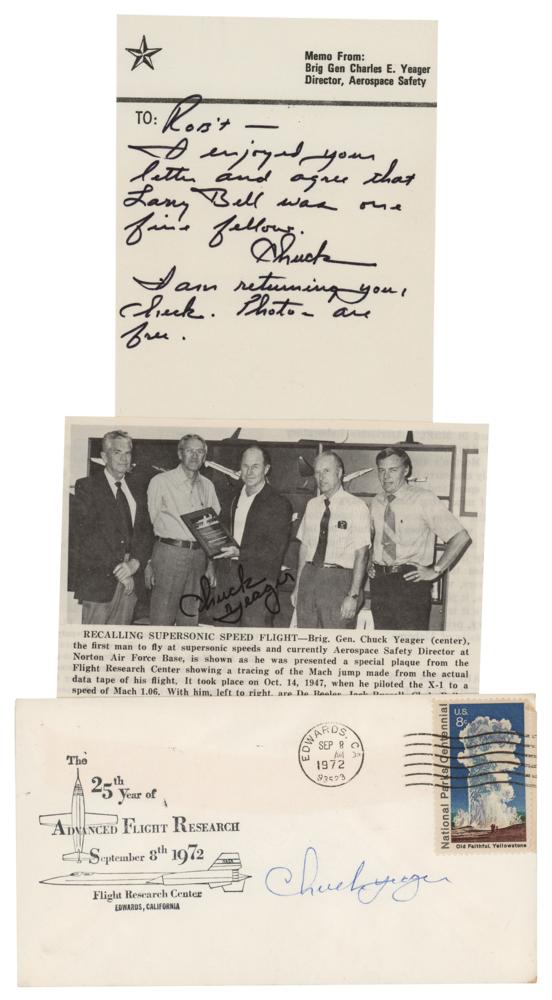 Memo From:
Brig Gen Charles E. Yeager
Director, Aerospace Safety
TO: Rob't —
I enjoyed your
letter and agree that
Larry Bell was one
fine fellow.
Chuck
I am returning your
check. Photos are
free.
Chuck
Yeager
RECALLING SUPERSONIC SPEED FLIGHT—Brig. Gen. Chuck Yeager (center),
the first man to fly at supersonic speeds and currently Aerospace Safety Director at
Norton Air Force Base, is shown as he was presented a special plaque from the
Flight Research Center showing a tracing of the Mach jump made from the actual
data tape of his flight. It took place on Oct. 14, 1947, when he piloted the X-1 to a
speed of Mach 1.06. With him, left to right, are De Beeler, Jack Russell,
The
25th
Year of
ADVANCED FLIGHT RESEARCH
September 8th 1972
NASA
Flight Research Center
EDWARDS, CALIFORNIA
EDWARDS, CA
SEP 8
AM
1972
93523
U.S.
8c
National Parks Centennial
Old Faithful, Yellowstone
Chuck Yeager